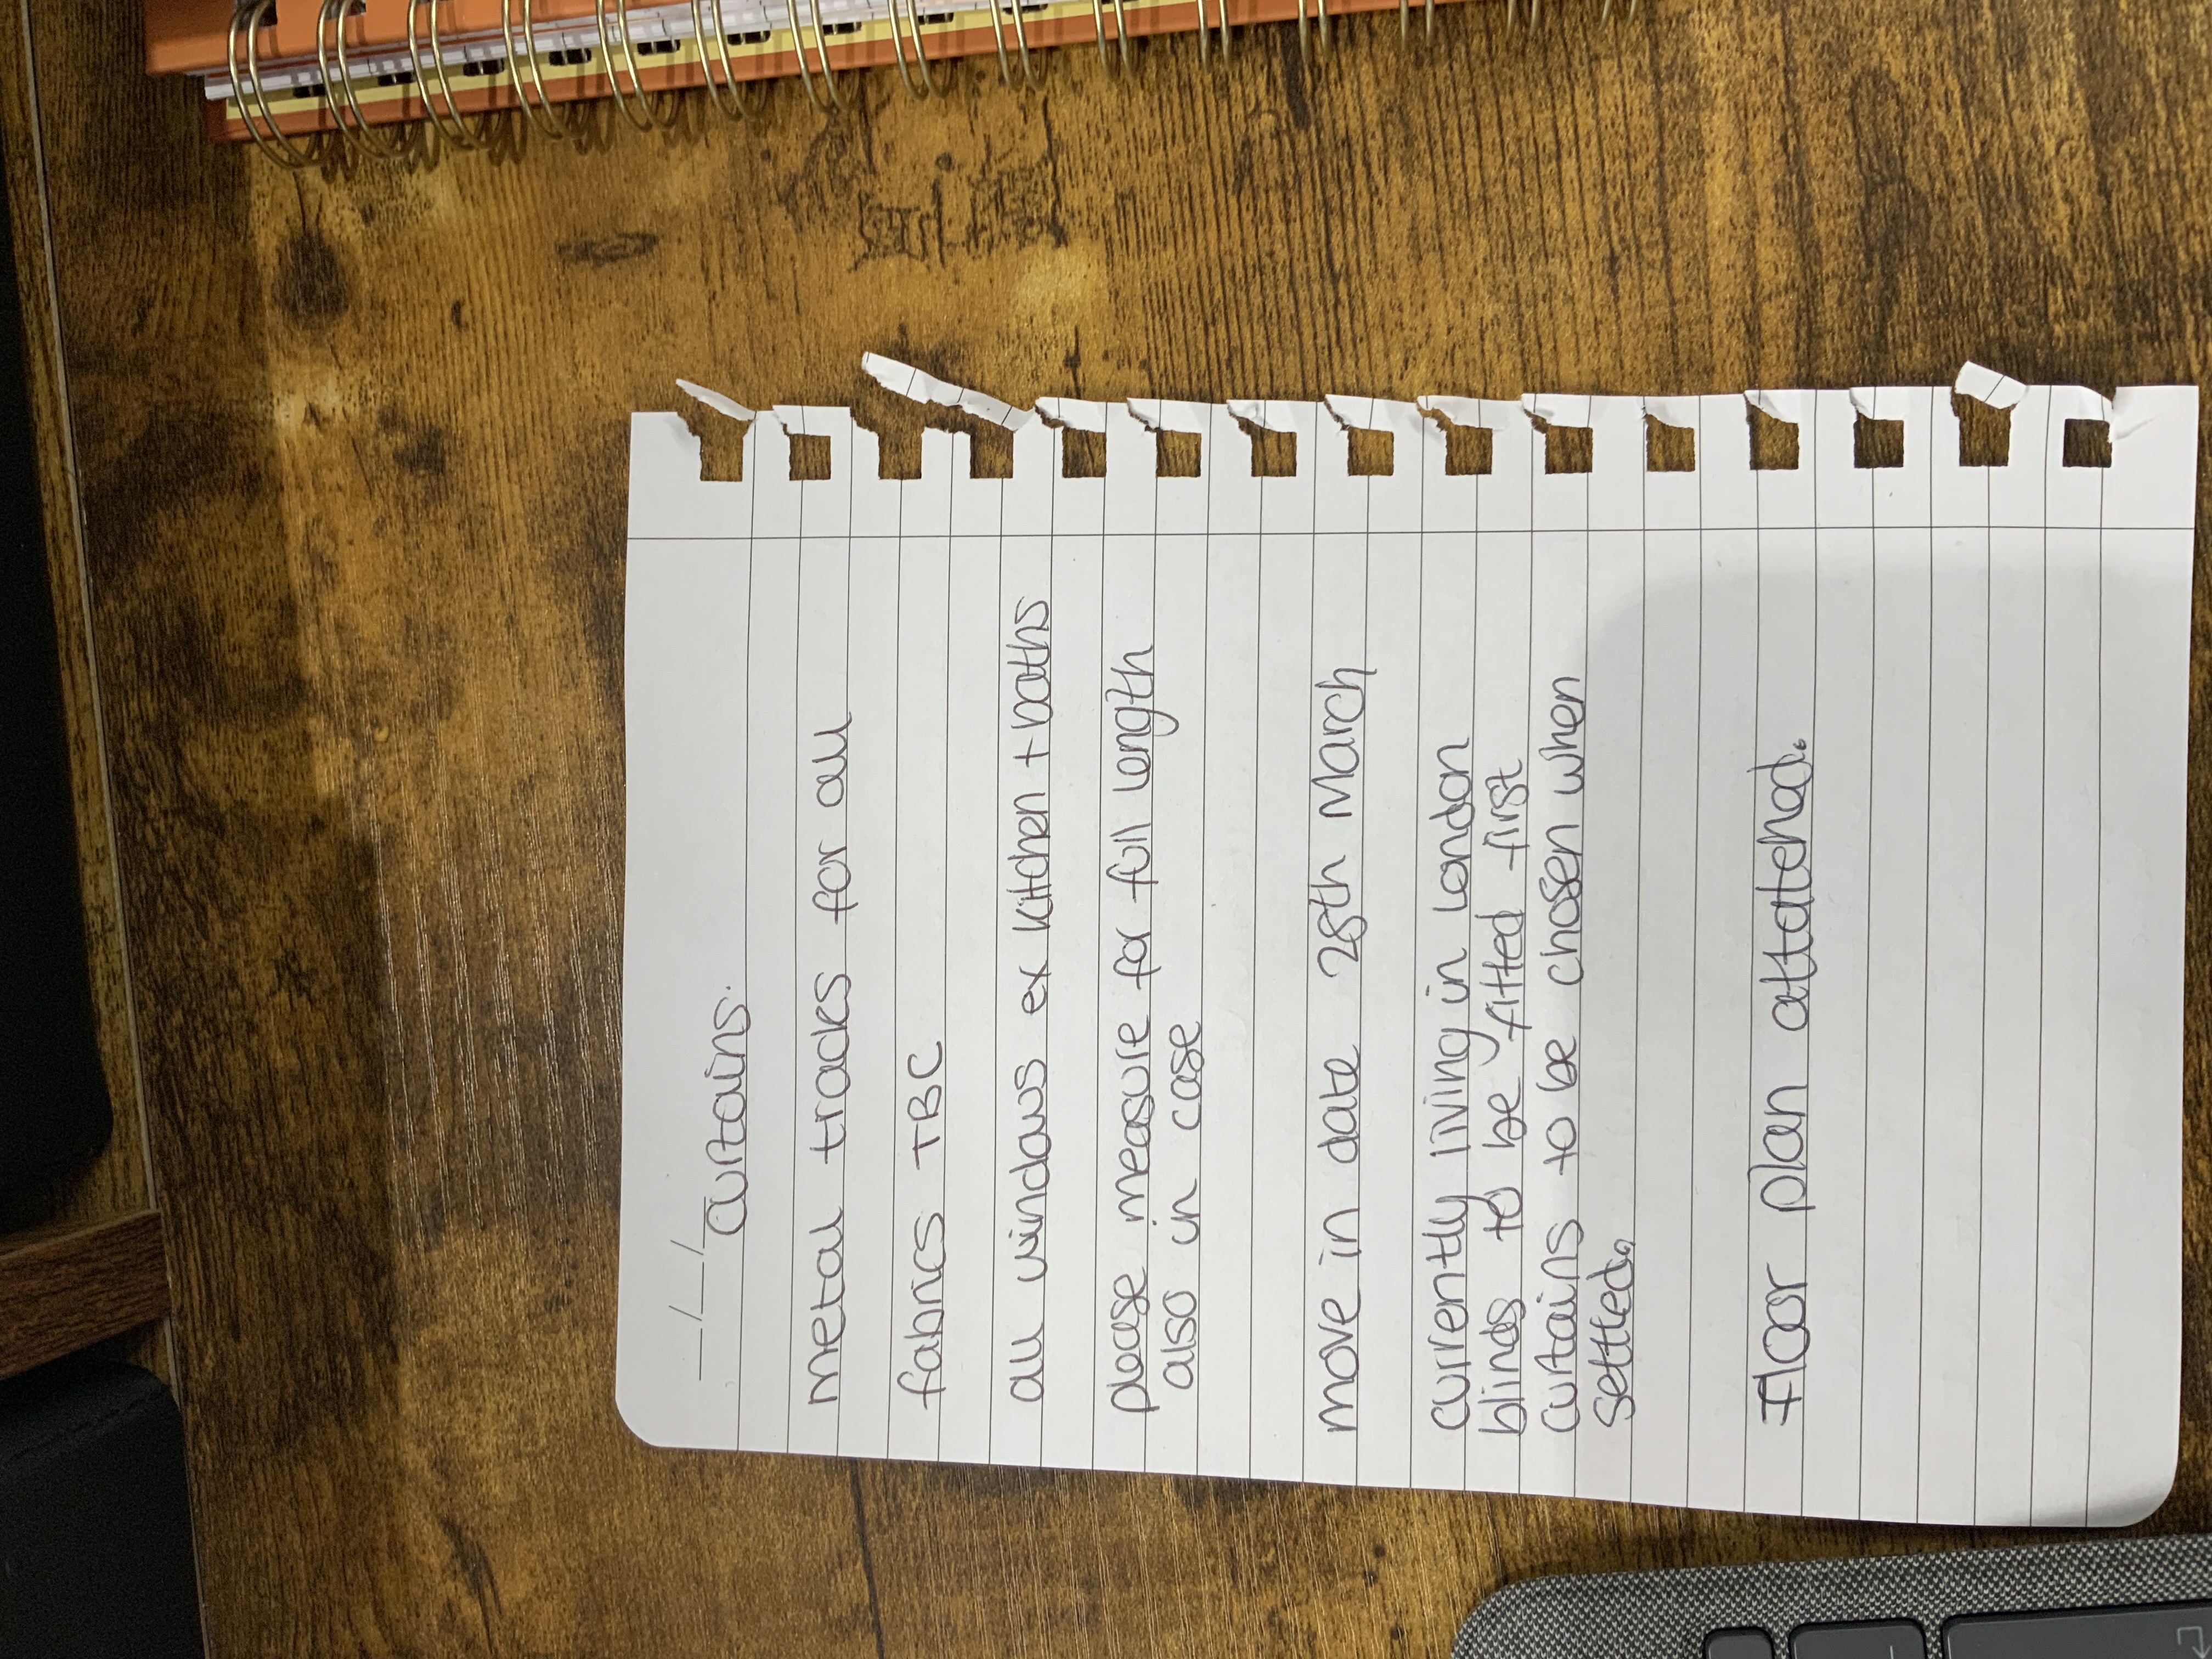 __/__/__
Curtains.
metal tracks for all
fabrics TBC
all windows ex kitchen + baths
please measure for full length
also in case
move in date 28th March
currently living in London
blinds to be fitted first
curtains to be chosen when
settled.
Floor plan attatched.